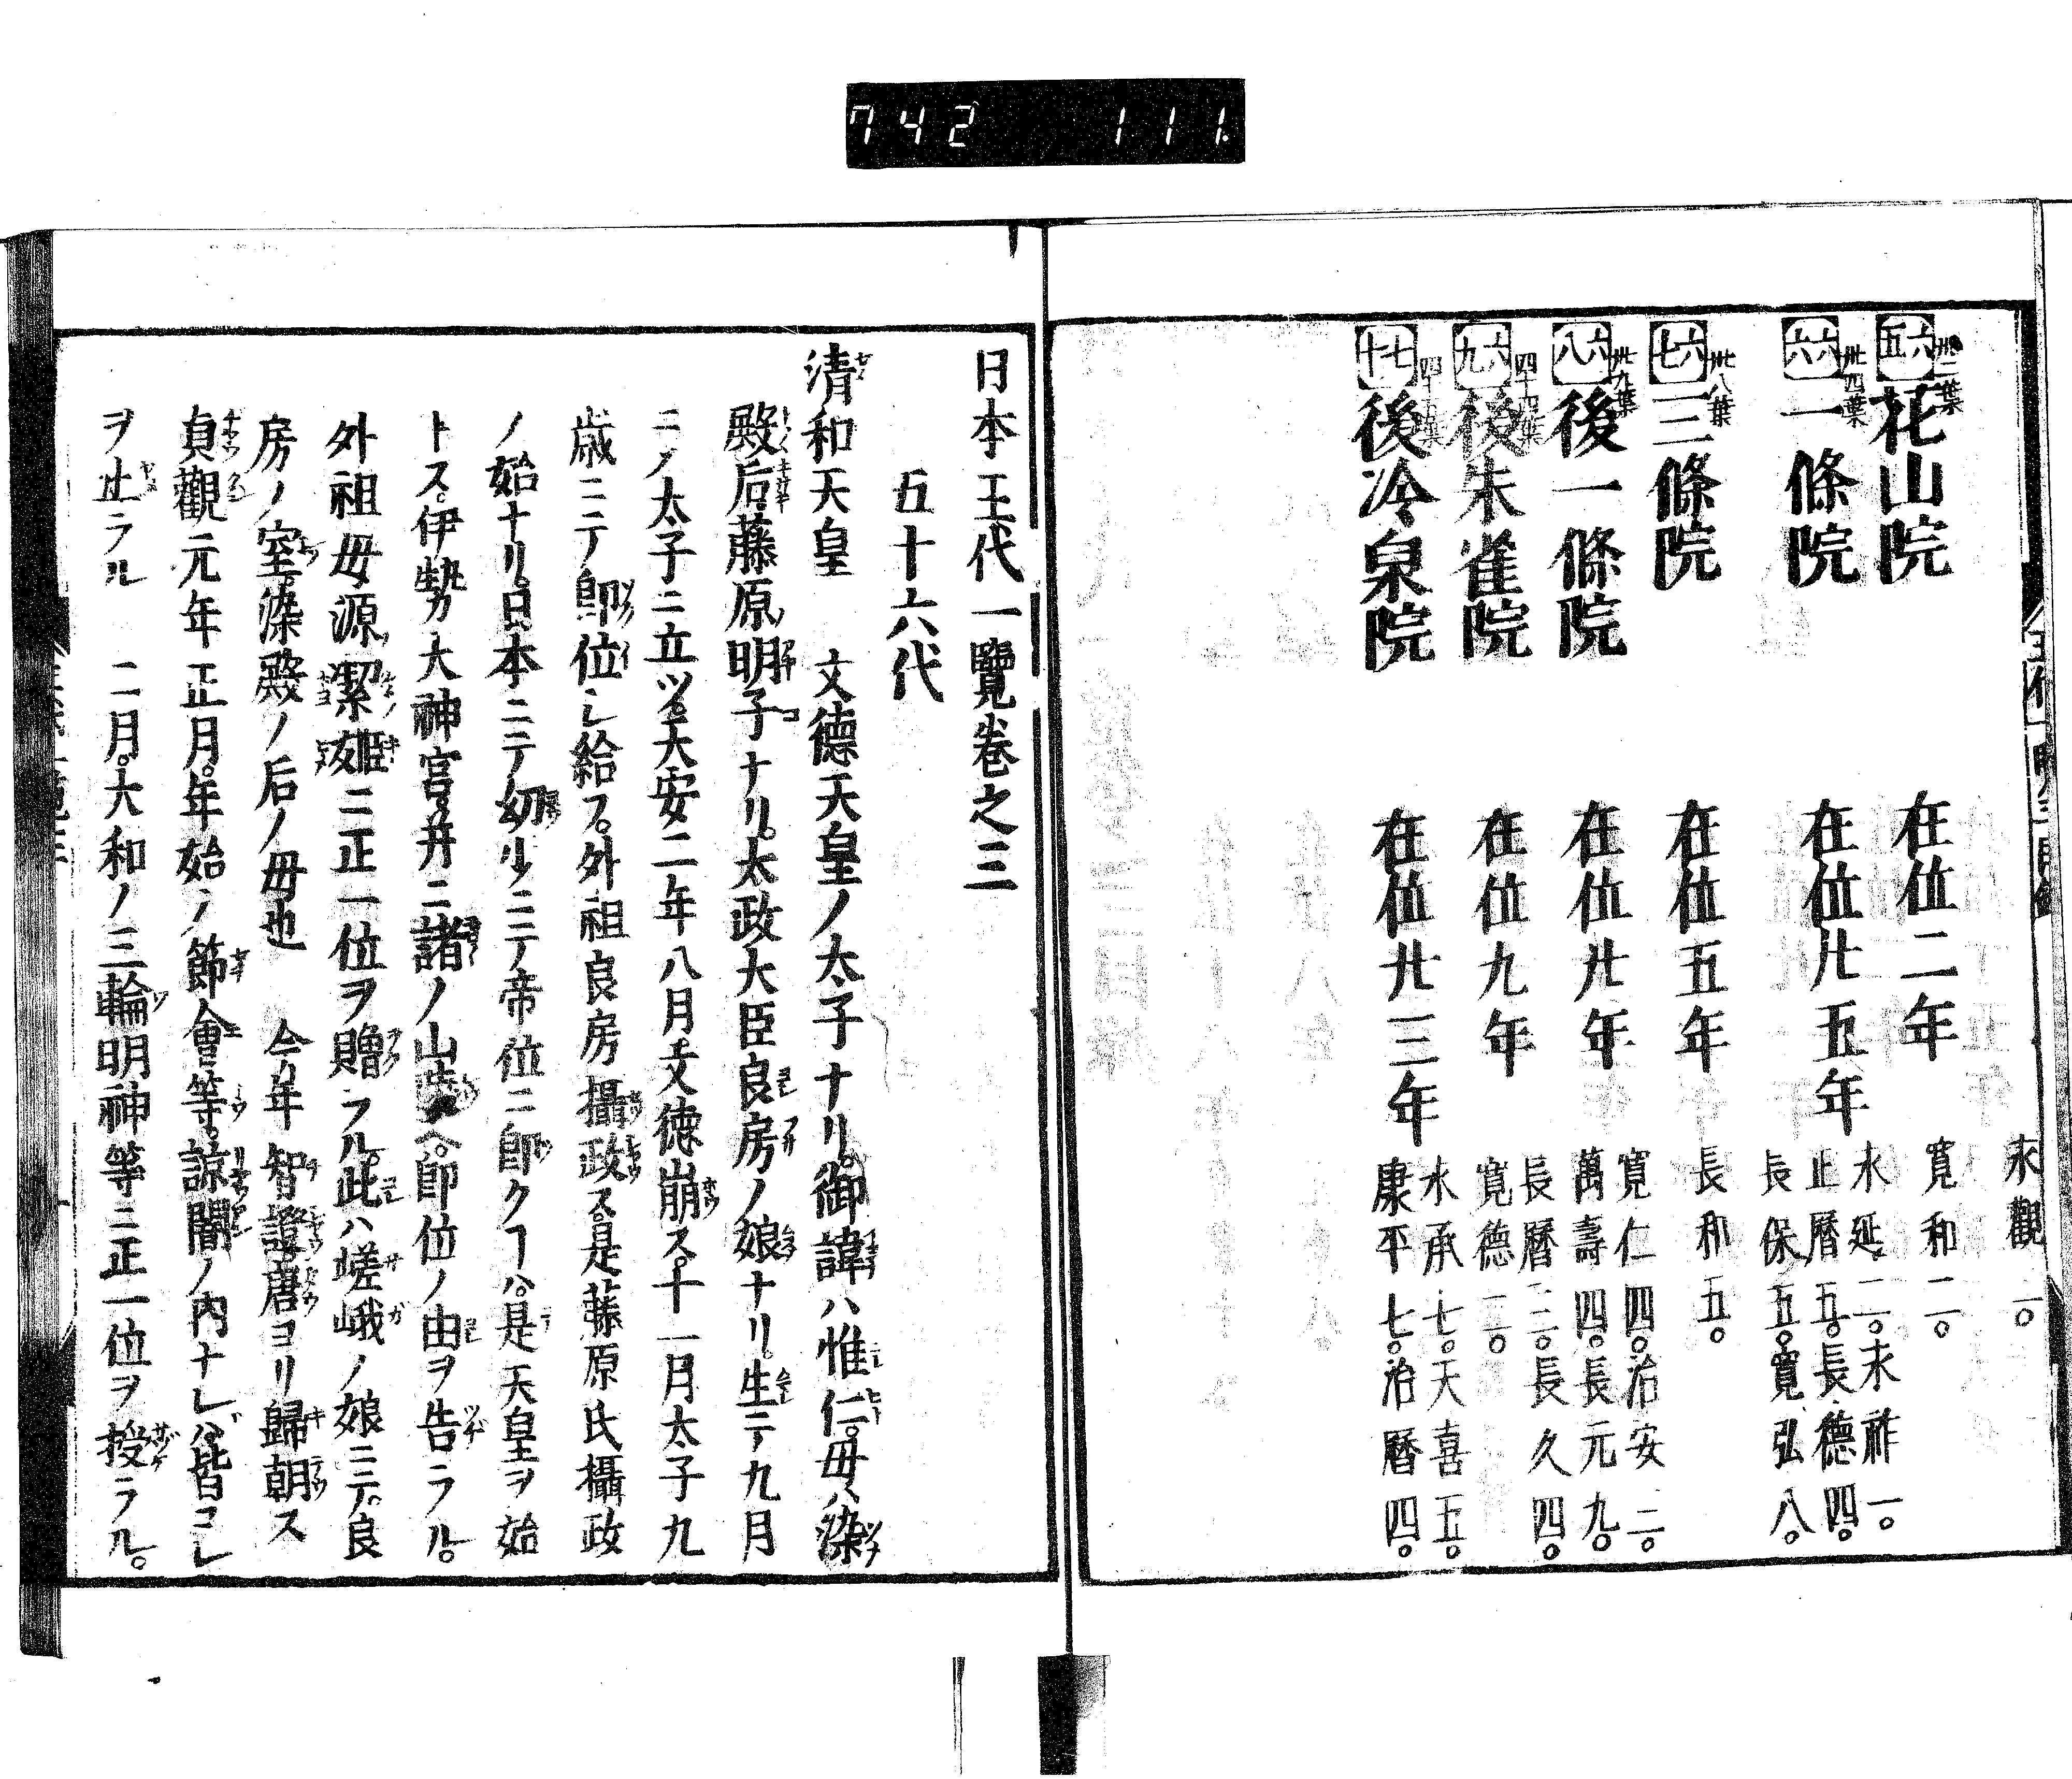 742 111.
永觀二。
六五 卅二葉 花山院 在位二年 寛和二。
六六 卅四葉 一條院 在位廿五年 永延二。永祚一。
正曆五。長德四。
長保五。寛弘八。
六七 卅八葉 三條院 在位五年 長和五。
六八 卅九葉 後一條院 在位廿年 寛仁四。治安三。
萬壽四。長元九。
六九 後朱雀院 在位九年 長曆三。長久四。
寛德二。
七十 後冷泉院 在位廿三年 永承七。天喜五。
康平七。治曆四。
日本王代一覽卷之三
五十六代
清和天皇 文德天皇ノ太子ナリ。御諱ハ惟仁。母ハ染
殿后。藤原明子ナリ。太政大臣良房ノ娘ナリ。生テ九月
ニノ太子ニ立ツ。天安二年八月文德崩ス。十一月太子九
歳ニテ即位シ給フ。外祖良房攝政ス。是藤原氏攝政
ノ始ナリ。日本ニテ幼少ニテ帝位ニ即クヿハ。是天皇ヲ始
トス。伊勢大神宮并ニ諸ノ山陵ヘ。即位ノ由ヲ告ラル。
外祖母源潔姫ニ正一位ヲ贈ラル。此ハ嵯峨ノ娘ニテ。良
房ノ室。染殿ノ后ノ母也 今年智證唐ヨリ歸朝ス
貞觀元年正月。年始ノ節會等。諒闇ノ内ナレバ皆コレ
ヲ止ラル 二月。大和ノ三輪明神等ニ正一位ヲ授ラル。